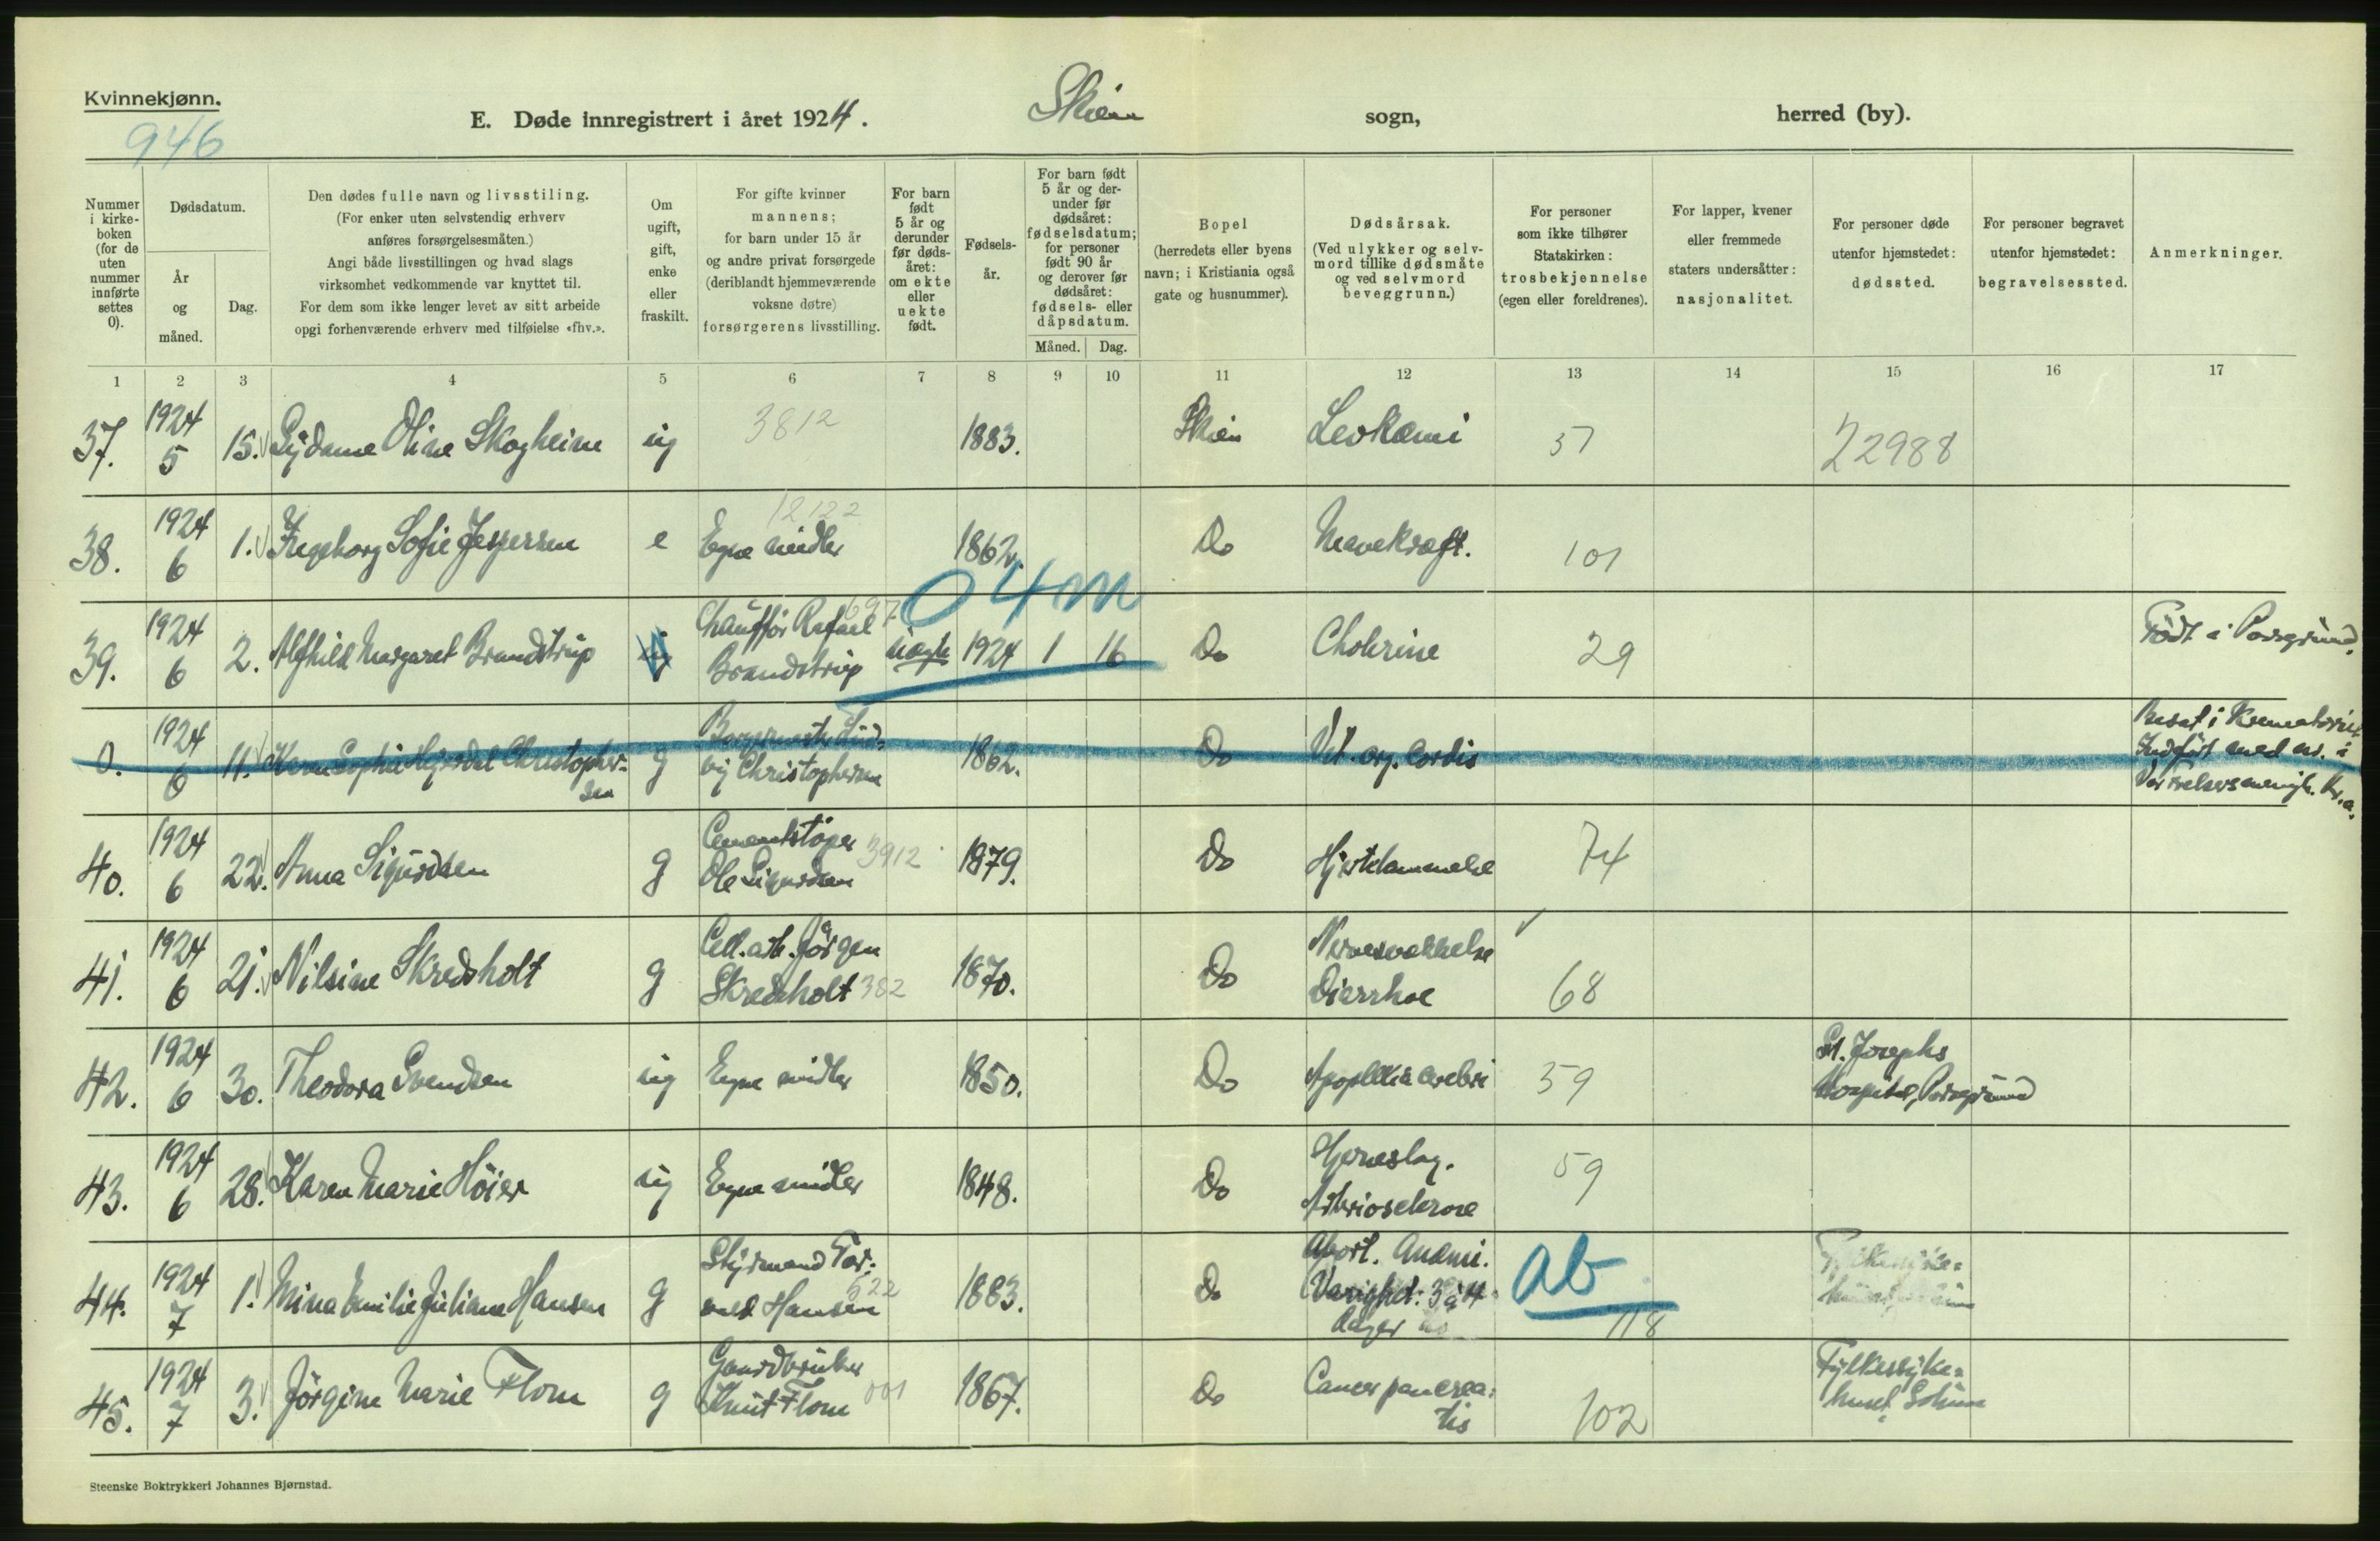 Kvinnekjønn.
946
E. Døde innregistrert i året 1924. Skien sogn, herred (by).
Nummer i kirke-boken (for de uten nummer innførte settes 0).
Dødsdatum.
År og måned.
Dag.
Den dødes fulle navn og livsstiling.
(For enker uten selvstendig erhverv
anføres forsørgelsesmåten.)
Angi både livsstillingen og hvad slags
virksomhet vedkommende var knyttet til.
For dem som ikke lenger levet av sitt arbeide
opgi forhenværende erhverv med tilføielse «fhv.».
Om ugift, gift, enke eller fraskilt.
For gifte kvinner
mannens;
for barn under 15 år
og andre privat forsørgede
(deriblandt hjemmeværende
voksne døtre)
forsørgerens livsstilling.
For barn født 5 år og derunder før døds-året: om ekte eller uekte født.
Fødsels-år.
For barn født 5 år og der-under før dødsåret: fødselsdatum; for personer født 90 år og derover før dødsåret: fødsels- eller dåpsdatum.
Måned. Dag.
Bopel
(herredets eller byens
navn; i Kristiania også
gate og husnummer).
Dødsårsak.
(Ved ulykker og selv-
mord tillike dødsmåte
og ved selvmord
beveggrunn.)
For personer
som ikke tilhører
Statskirken:
trosbekjennelse
(egen eller foreldrenes).
For lapper, kvener
eller fremmede
staters undersåtter:
nasjonalitet.
For personer døde
utenfor hjemstedet:
dødssted.
For personer begravet
utenfor hjemstedet:
begravelsessted.
Anmerkninger.
1 2 3 4 5 6 7 8 9 10 11 12 13 14 15 16 17
37. 1924 5 15. Sydame Oline Skogheim ug 3812 1883. Skien Leukemi 57 22988
38. 1924 6 1. Ingeborg Sofie Jespersen e 12122 Egne midler 1862. Do Mavekræft. 101
04m
39. 1924 6 2. Alfhild Margaret Brandstrup Chauffør Rafael 697 Brandstrup uægte 1924 1 16 Do Cholerine 29 Født i Porsgrund.
0. 1924 6 11. Karen Sophie Hejerdal Christophersen g Borgermester Ludvig Christophersen 1862. Do Vit. org. Cordis Bisat i Krematoriet Indført med nr. i Vor Frelsers menigh. Kr.a.
40. 1924 6 22. Anna Sigurdsen g Cementstøper 3912 Ole Sigurdsen 1879. Do Hjertelammelse 74
41. 1924 6 21. Nilsine Skredsholt g Cell.arb. Jørgen Skredsholt 382 1870. Do Nervesvekkelse Diarrhoe 68
42. 1924 6 30. Theodora Svendsen ug Egne midler 1850. Do Apoplexia cerebri 59 St. Josephs Hospital, Porsgrund
43. 1924 6 28. Karen Marie Höier ug Egne midler 1848. Do Hjerneslag. Arteriosclerose 59
44. 1924 7 1. Mina Emilie Juliane Hansen g Styrmand Tormod Hansen 522 1883. Do Abort. Anæmi. Varighet: 3 à 4 dager ab 118
45. 1924 7 3. Jörgine Marie Flom g Gaardbruker Knut Flom 001 1867. Do Cancer pancreatis 102 Fylkessykehuset, Solum
Steenske Boktrykkeri Johannes Bjørnstad.